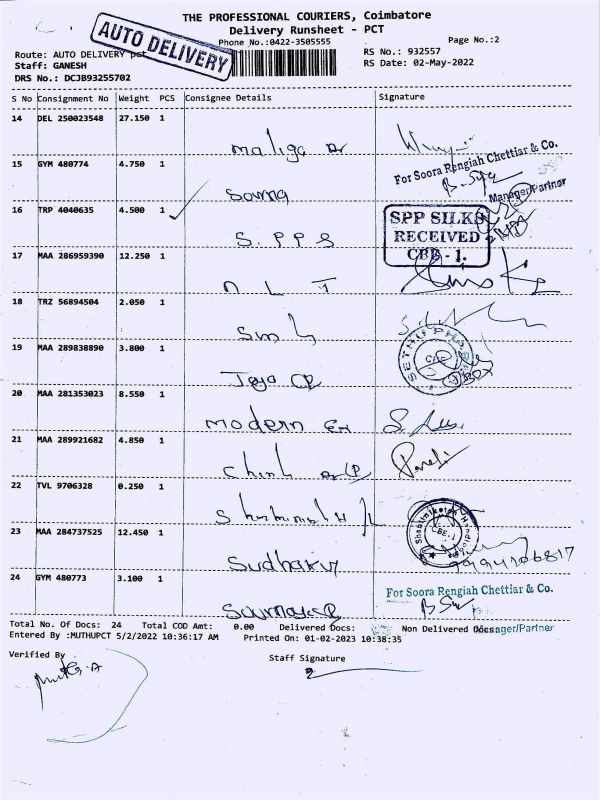 THE PROFESSIONAL COURIERS, Coimbatore
Delivery Runsheet - PCT
AUTO DELIVERY
Phone No.:0422-3505555
Page No.:2
Route: AUTO DELIVERY pct
RS No.: 932557
Staff: GANESH
RS Date: 02-May-2022
DRS No.: DCJB93255702
S No Consignment No Weight PCS Consignee Details Signature
14 DEL 250023548 27.150 1
maliga
15 GYM 480774 4.750 1
For Soora Rengiah Chettiar & Co.
Manager/Partner
16 TRP 4040635 4.500 1
S. PPS
SPP SILKS
RECEIVED
CBE - 1.
17 MAA 286959390 12.250 1
n L T
18 TRZ 56894504 2.050 1
19 MAA 289838890 3.800 1
Jaya CP
20 MAA 281353023 8.550 1
modern
21 MAA 289921682 4.850 1
22 TVL 9706328 0.250 1
23 MAA 284737525 12.450 1
CBE-1
Sudhakar
24 GYM 480773 3.100 1
For Soora Rengiah Chettiar & Co.
Total No. Of Docs: 24 Total COD Amt: 0.00 Delivered Docs: Non Delivered Docs:
Manager/Partner
Entered By :MUTHUPCT 5/2/2022 10:36:17 AM Printed On: 01-02-2023 10:38:35
Verified By
Staff Signature